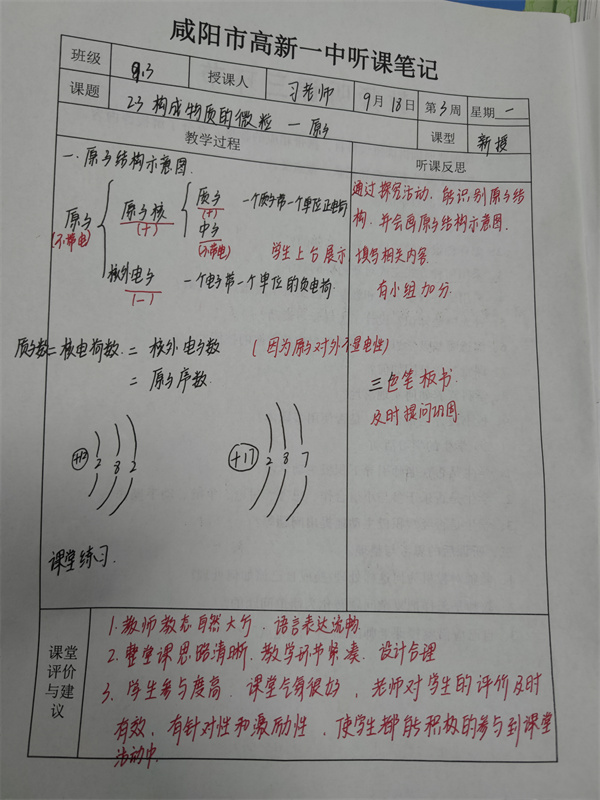 咸阳市高新一中听课笔记
班级 9.3 授课人 习老师 9月18日 第3周 星期一
课题 2.3 构成物质的微粒 — 原子 课型 新授
教学过程 听课反思
一.原子结构示意图.
原子 (不带电)
原子核 (+)
质子 (+) 一个质子带一个单位正电荷
中子 (不带电)
核外电子 (-1) 一个电子带一个单位的负电荷
学生上台展示
质子数=核电荷数=核外电子数 (因为原子对外不显电性)
=原子序数.
+12 2 8 2
+17 2 8 7
课堂练习.
通过探究活动.能识别原子结
构.并会画原子结构示意图.
填写相关内容.
有小组加分.
三色笔板书.
及时提问巩固.
课堂评价与建议
1.教师教态自然大方.语言表达流畅.
2.整堂课思路清晰.教学环节紧凑.设计合理
3.学生参与度高.课堂气氛很好,老师对学生的评价及时
有效.有针对性和激励性,使学生都能积极的参与到课堂
活动中.